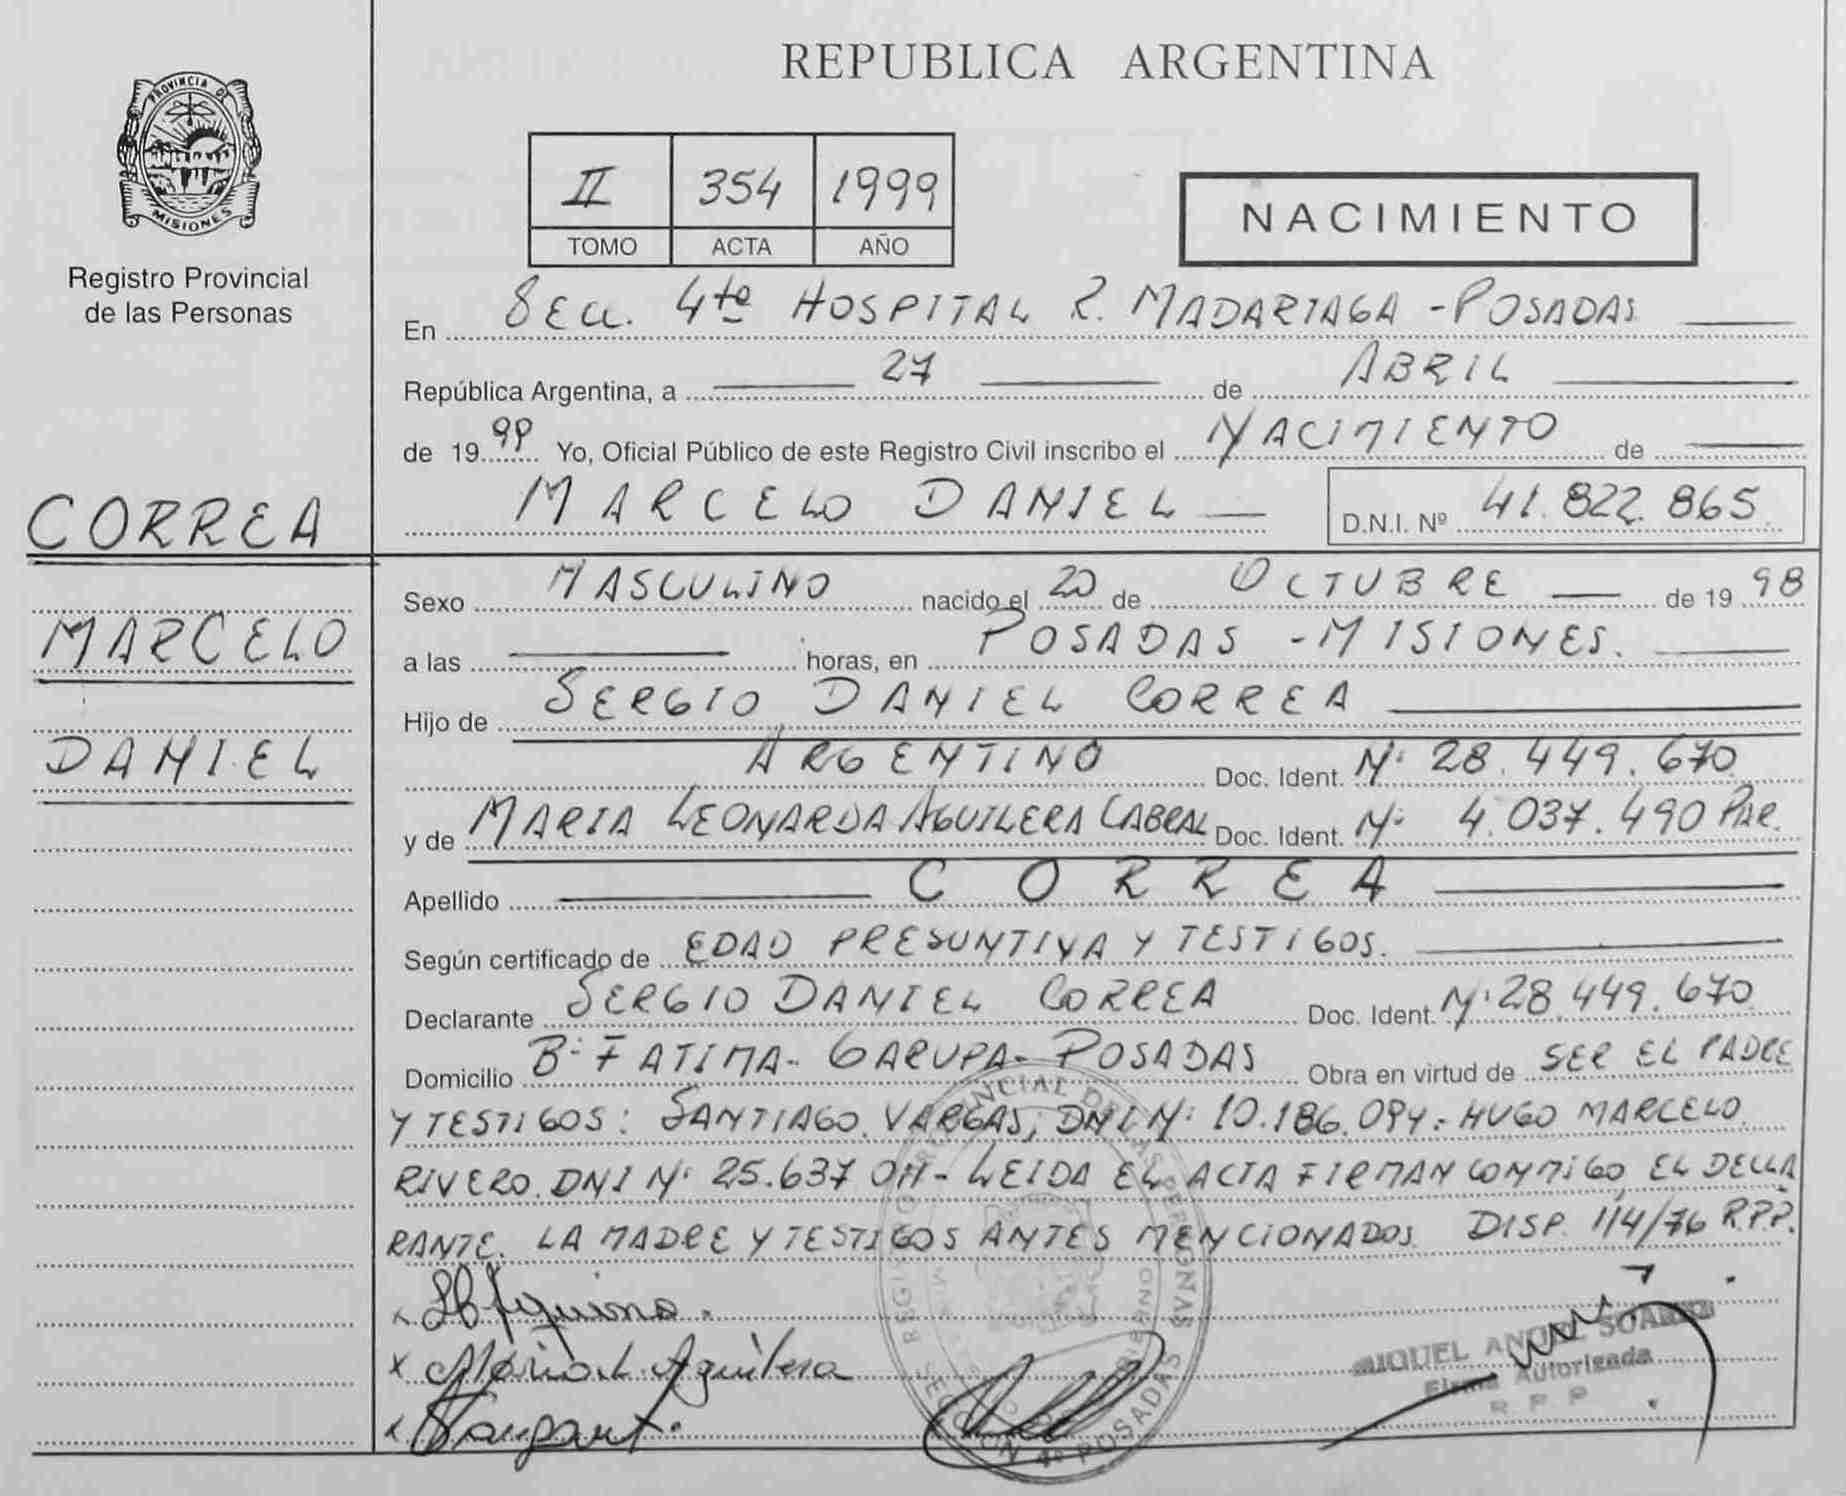 REPUBLICA ARGENTINA
PROVINCIA DE
MISIONES
Registro Provincial
de las Personas
II 354 1999
TOMO ACTA AÑO
NACIMIENTO
En SECC. 4ta HOSPITAL R. MADARIAGA - POSADAS
República Argentina, a 27 de ABRIL
de 1999 Yo, Oficial Público de este Registro Civil inscribo el NACIMIENTO de
MARCELO DANIEL D.N.I. Nº 41.822.865
CORREA
MARCELO
DANIEL
Sexo MASCULINO nacido el 20 de OCTUBRE de 1998
a las horas, en POSADAS - MISIONES.
Hijo de SERGIO DANIEL CORREA
ARGENTINO Doc. Ident. Nº 28.449.670
y de MARIA LEONARDA AGUILERA CABRAL Doc. Ident. Nº 4.037.490 PAR.
Apellido CORREA
Según certificado de EDAD PRESUNTIVA Y TESTIGOS.
Declarante SERGIO DANIEL CORREA Doc. Ident. Nº 28.449.670
Domicilio Bº FATIMA - GARUPA - POSADAS Obra en virtud de SER EL PADRE
Y TESTIGOS: SANTIAGO VARGAS, DNI Nº 10.186.094 - HUGO MARCELO
RIVERO. DNI Nº 25.637 - LEIDA EL ACTA FIRMAN CONMIGO, EL DECLA
RANTE. LA MADRE Y TESTIGOS ANTES MENCIONADOS. DISP. 114/76 R.P.P.
Maria L. Aguilera
MIGUEL ANGEL SUAREZ
Firma Autorizada
R P P
SECCION 4º POSADAS